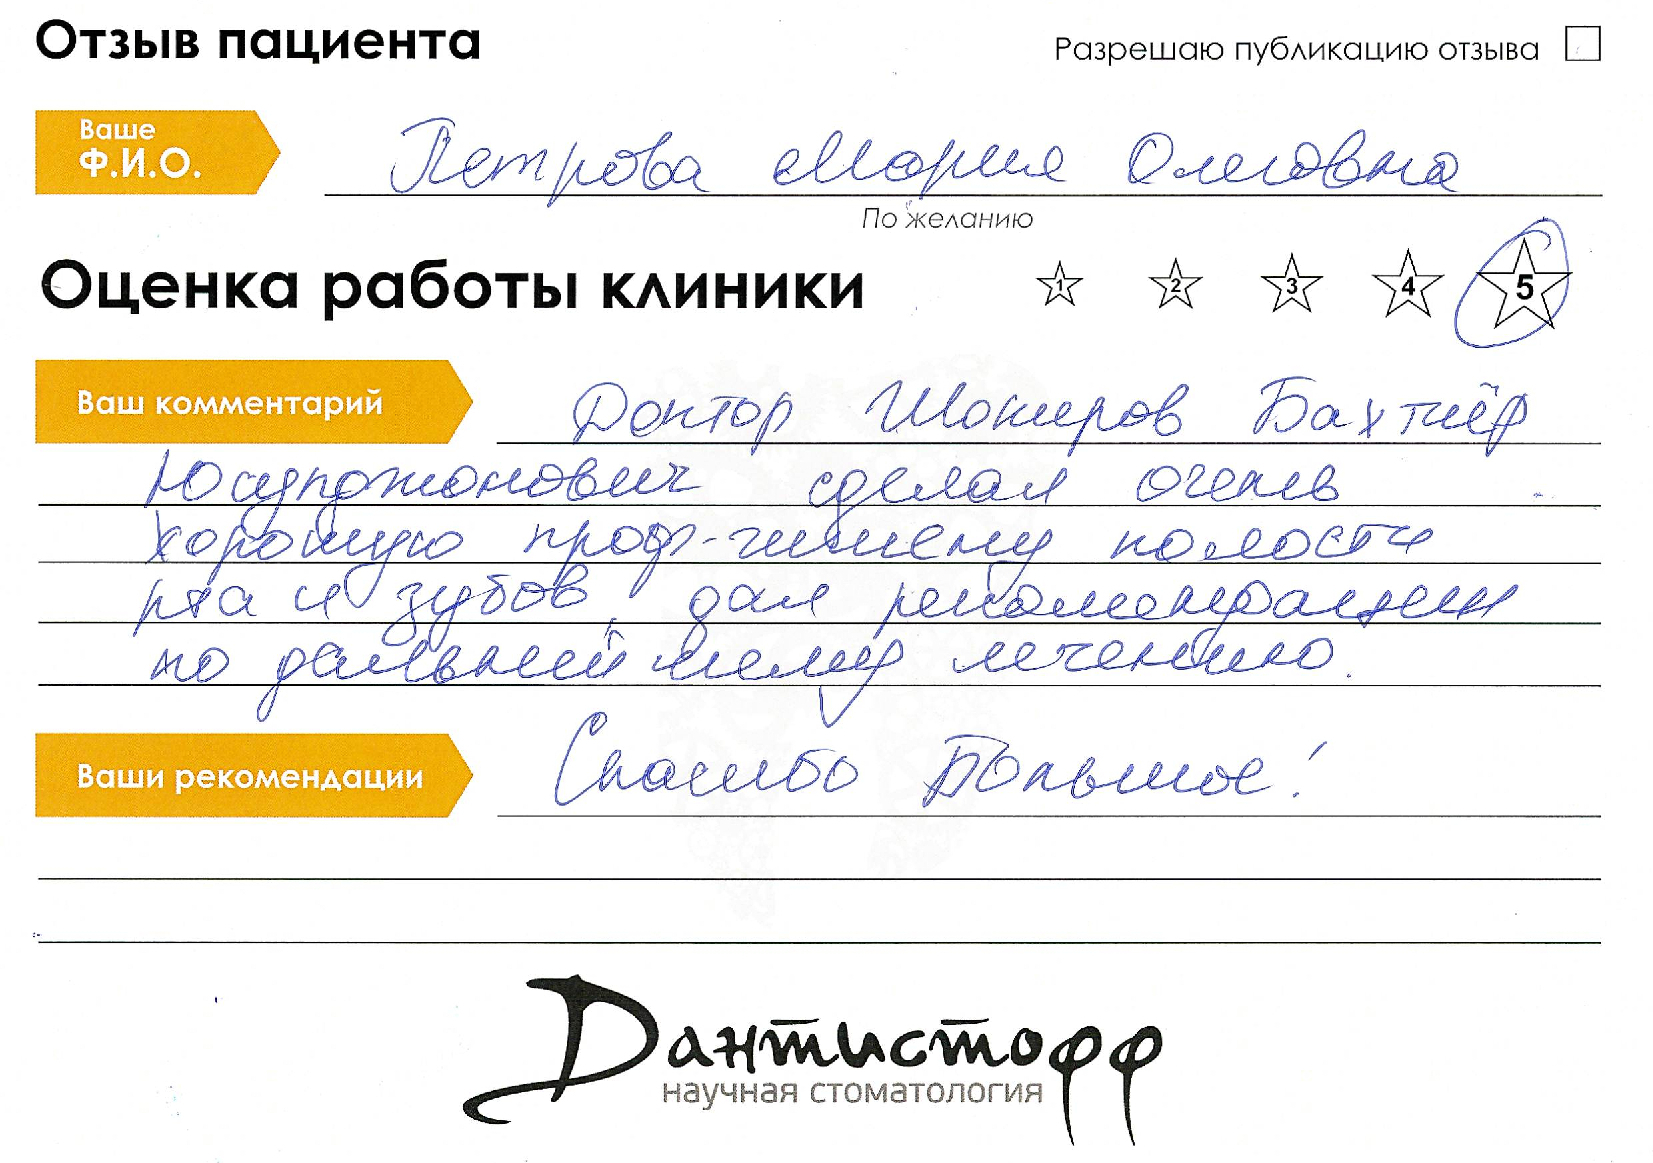 Отзыв пациента
Разрешаю публикацию отзыва
Ваше
Ф.И.О.
Петрова Мария Олеговна
По желанию
Оценка работы клиники
1 2 3 4 5
Ваш комментарий
Доктор Шокиров Бахтиёр
Юсупджонович сделал очень
хорошую проф-гигиену полости
рта и зубов, дал рекомендации
по дальнейшему лечению.
Ваши рекомендации
Спасибо Большое!
Дантистофф
научная стоматология